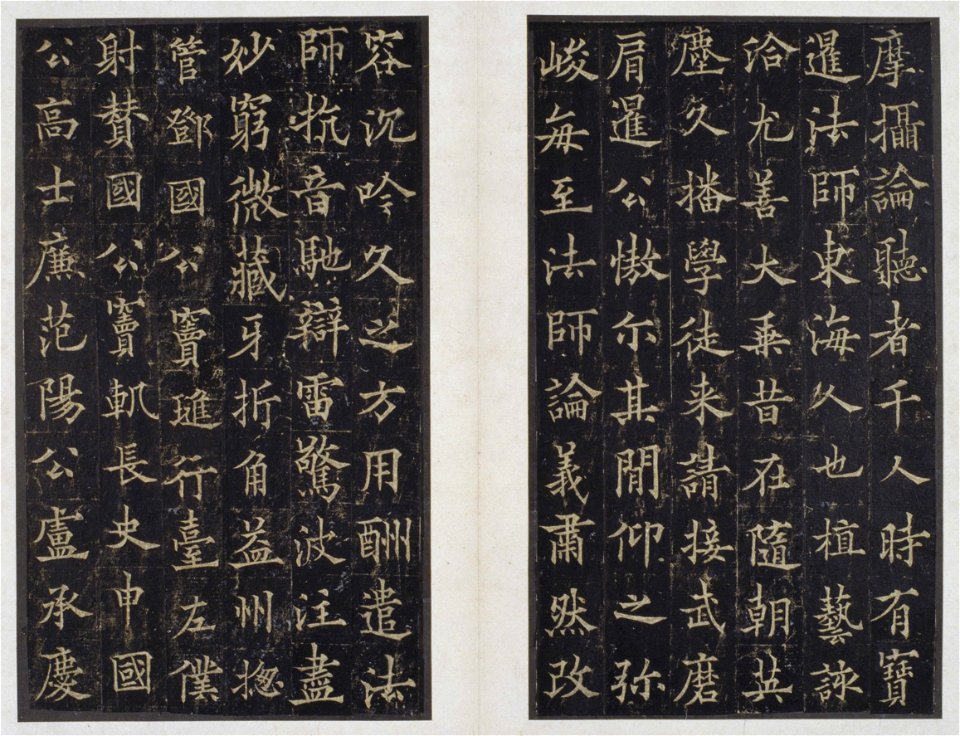 摩攝論聽者千人時有寶
暹法師東海人也植藝該
洽尤善大乗昔在隨朝英
塵久播學徒来請接武磨
肩暹公傲尒其閒仰之弥
峻每至法師論義肅然改
容沉吟久之方用酬遣法
師抗音馳辯雷驚波注盡
妙窮微藏牙折角益州揔
管鄧國公竇璡行臺左僕
射贊國公竇軌長史申國
公高士廉范陽公盧承慶